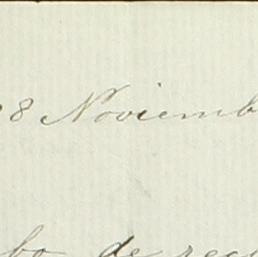 8 Noviemb
bo de rec